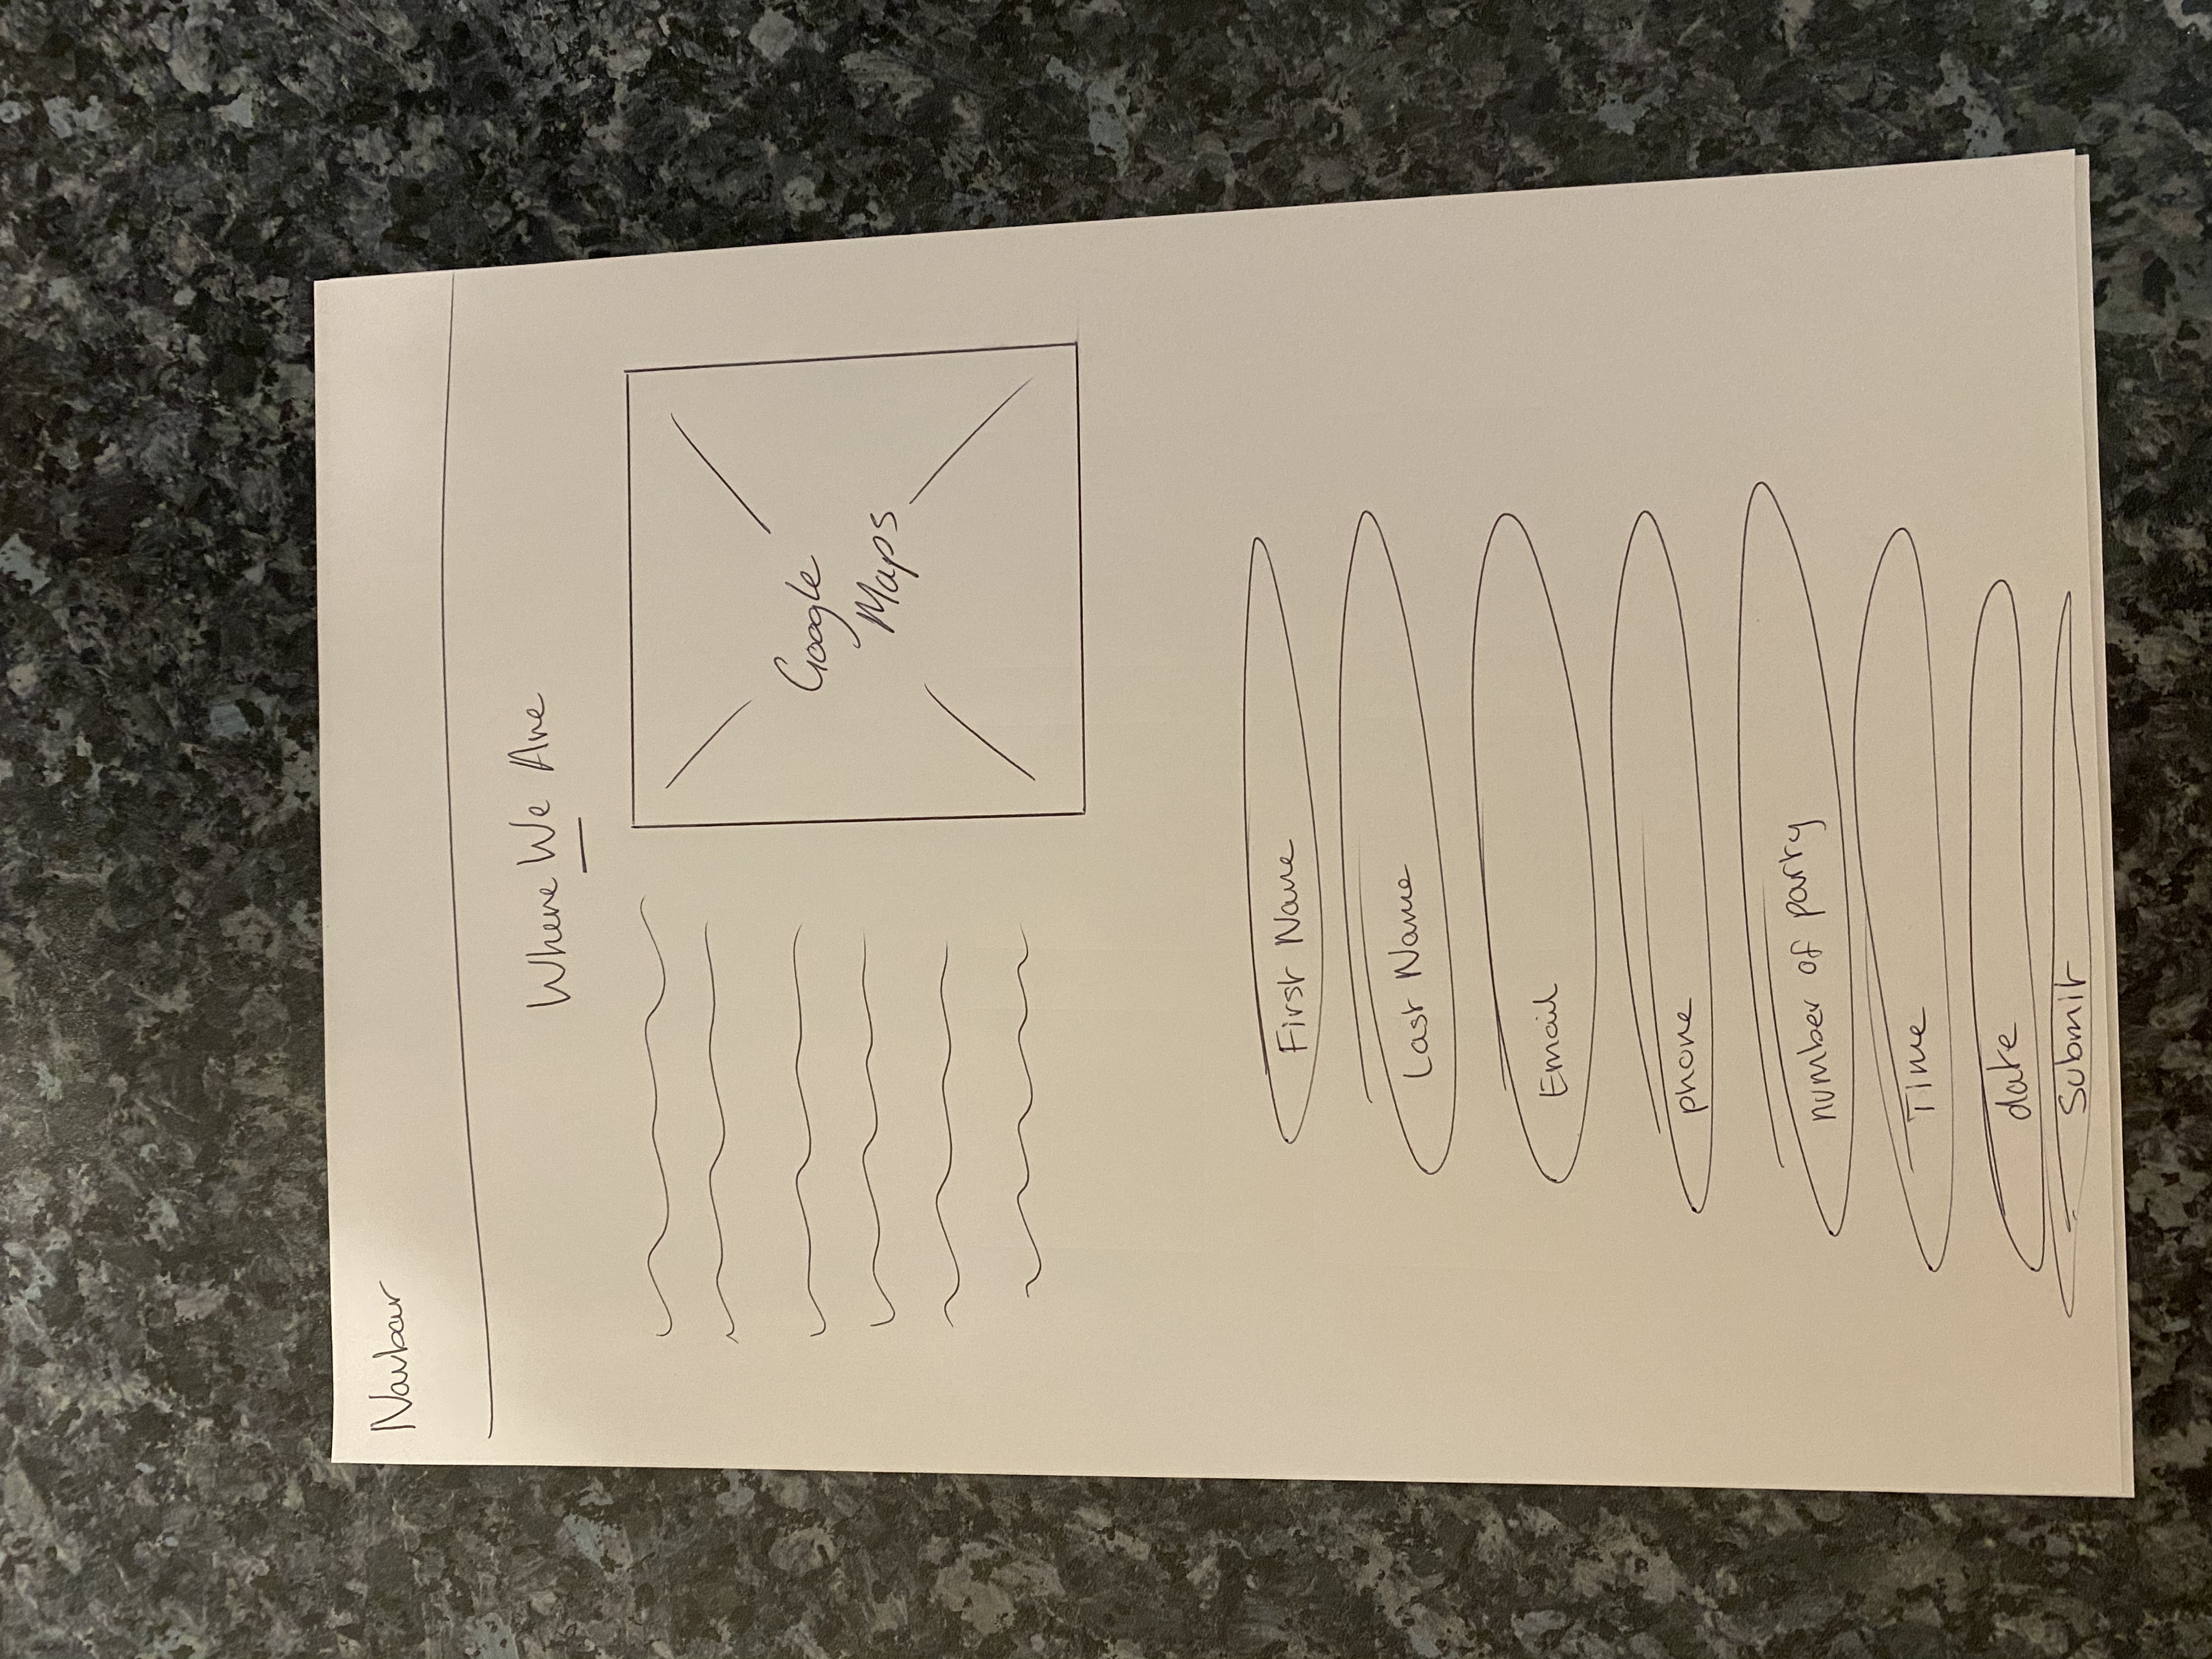 Navbar
Where We Are
Google
Maps
First Name
Last Name
Email
phone
number of party
Time
date
Submit